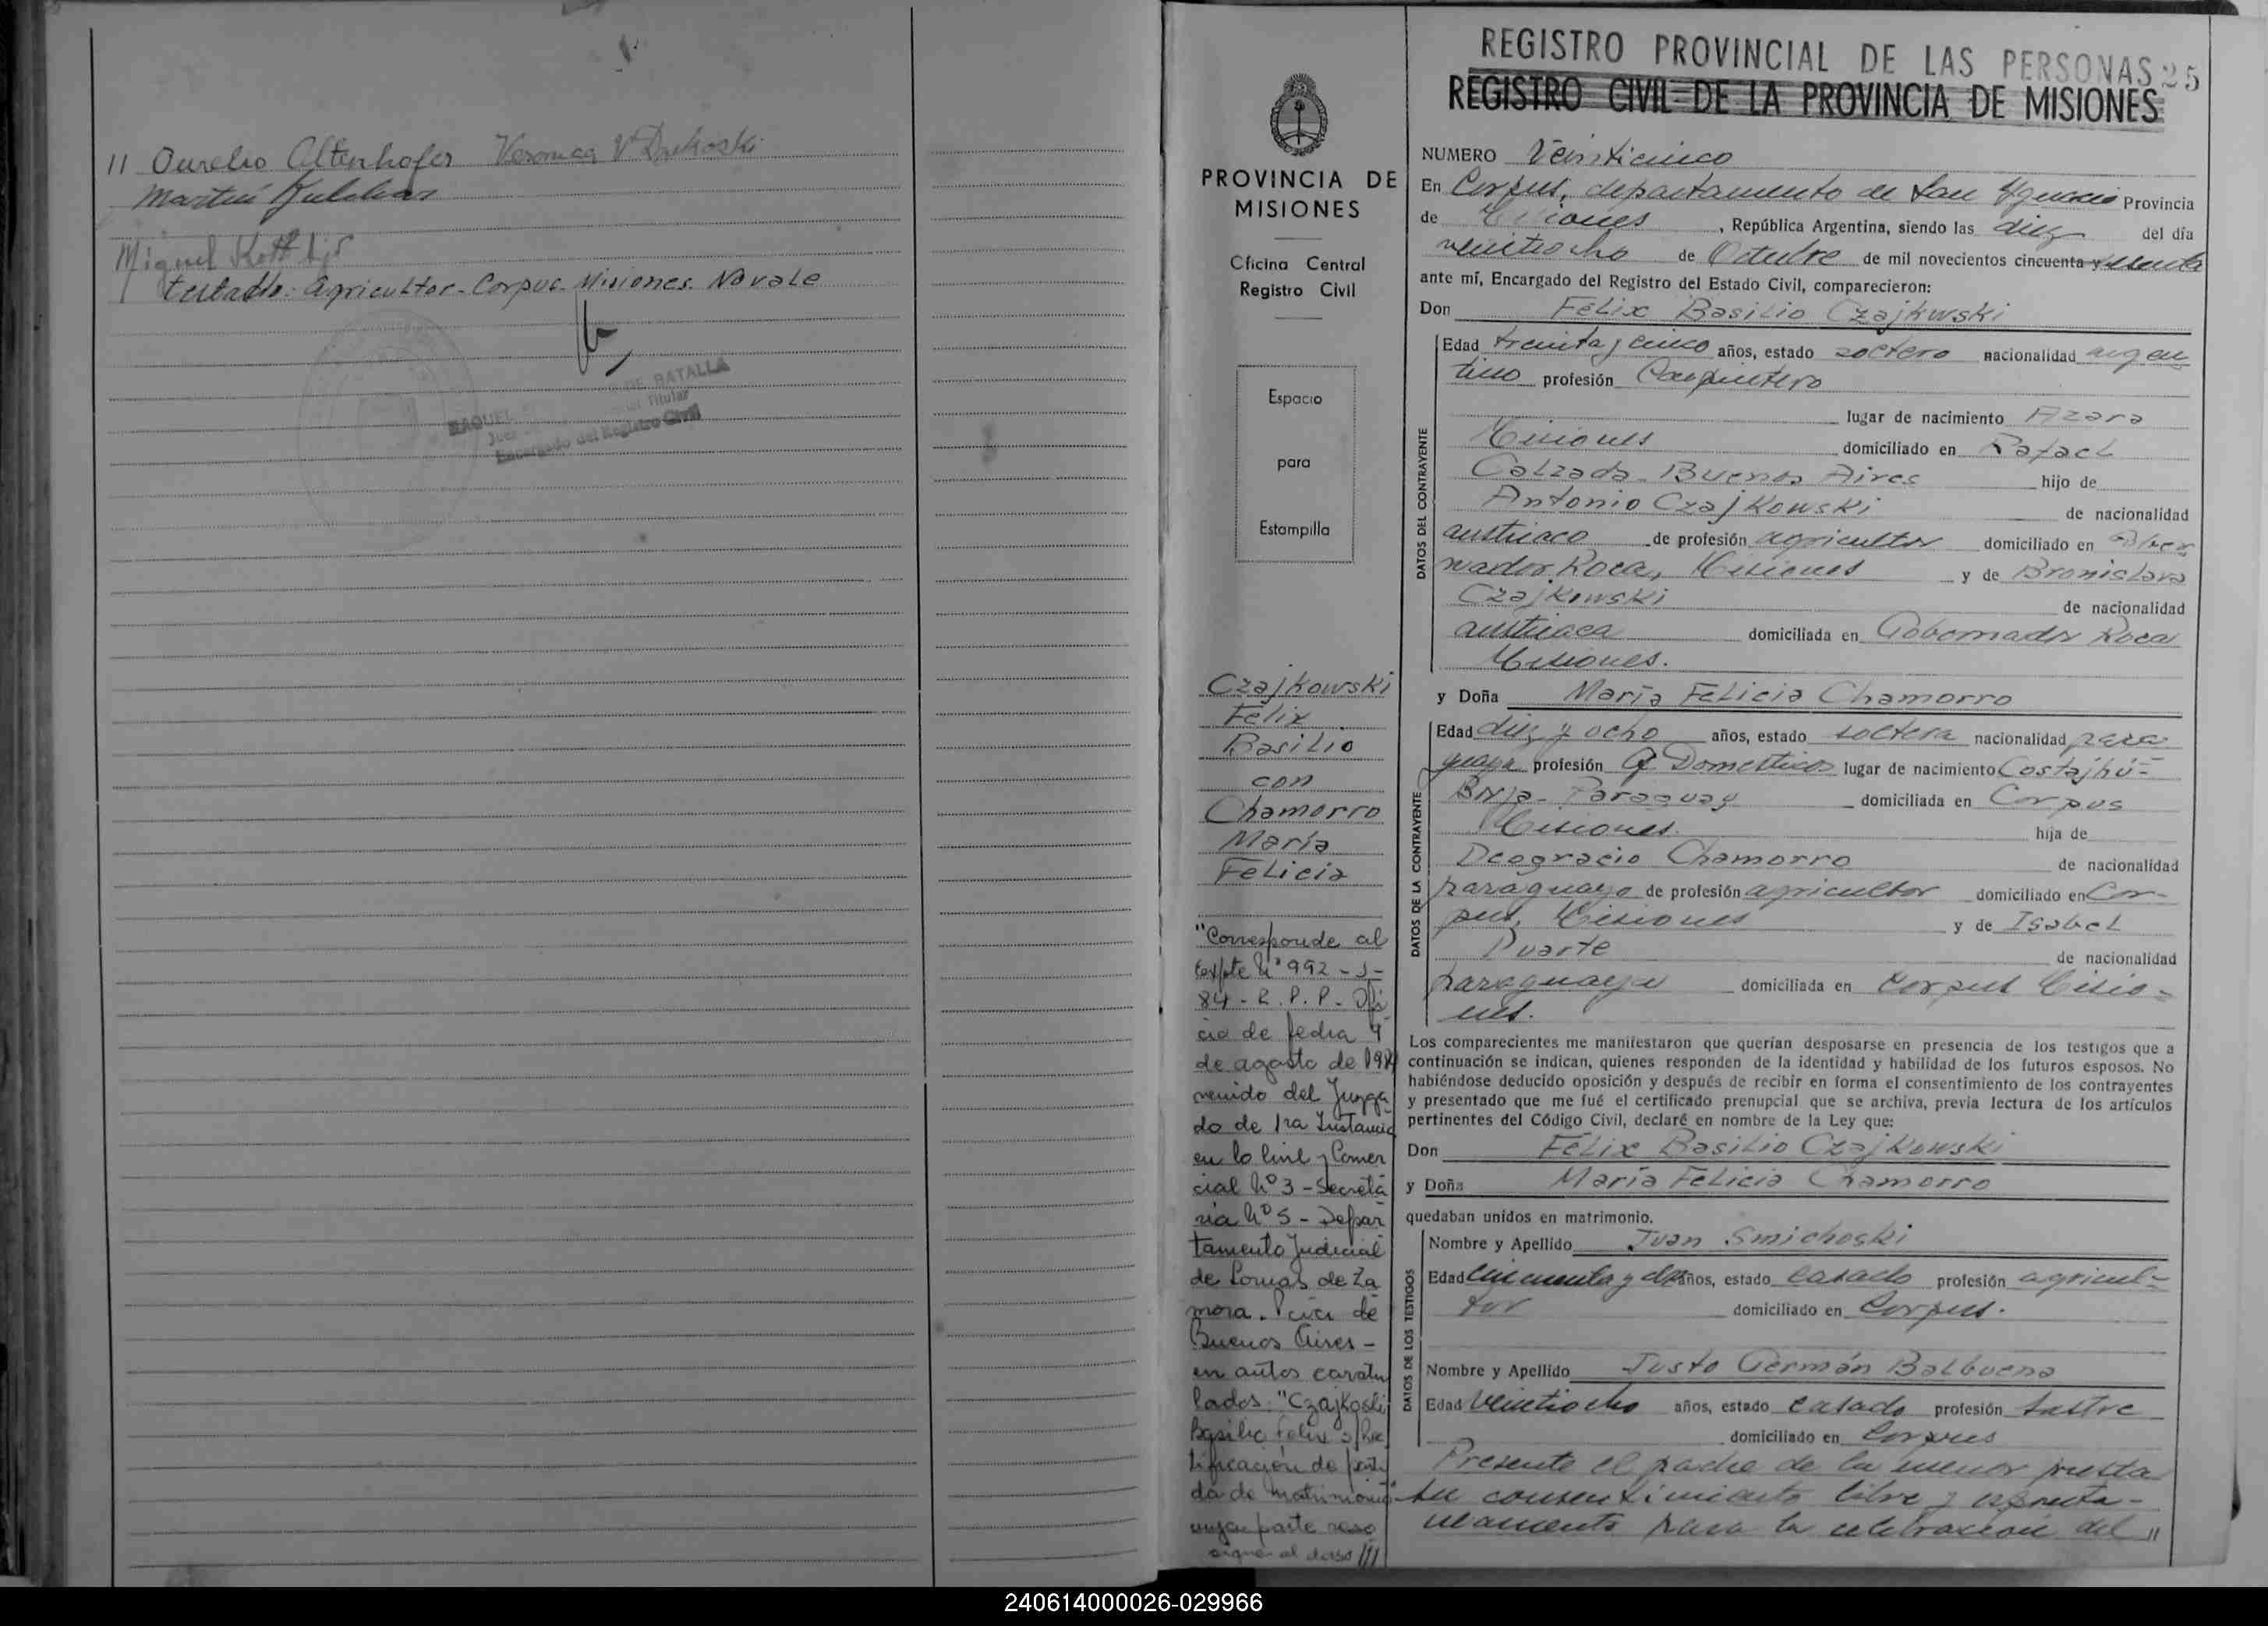 11 Aurelio Altenhofer Veronica V
Martin
Miguel Kott hijo
testado: agricultor - Corpus - Misiones. No vale
DE BATALLA
RAQUEL
Titular
Juez
Encargado del Registro Civil
PROVINCIA DE
MISIONES
Oficina Central
Registro Civil
Espacio
para
Estampilla
Czajkowski
Félix
Basilio
con
Chamorro
María
Felicia
"Corresponde al
Expte Nº 992 - J -
84 - R. P. P. - Ofi
cio de fecha 9
de agosto de 1984
venido del Juzga
do de 1ra Instancia
en lo Civil y Comer
cial Nº 3 - Secreta
ria Nº 5 - Depar
tamento Judicial
de Lomas de Za
mora. Pcia de
Buenos Aires -
en autos caratu
lados: "Czajkoski
Basilio Felix s/Rec
tificación de parti
da de matrimonio"
cuya parte reso
sigue al dorso ///
REGISTRO PROVINCIAL DE LAS PERSONAS 25
REGISTRO CIVIL DE LA PROVINCIA DE MISIONES
NUMERO Veinticinco
En Corpus, departamento de San Ygnacio Provincia
de Misiones, República Argentina, siendo las diez del día
veintiocho de Octubre de mil novecientos cincuenta y sesenta
ante mí, Encargado del Registro del Estado Civil, comparecieron:
Don Félix Basilio Czajkwski
Edad treinta y cinco años, estado soltero nacionalidad argen
tino profesión Carpintero
lugar de nacimiento Azara
Misiones domiciliado en Rafael
Calzada - Buenos Aires hijo de
Antonio Czajkowski de nacionalidad
austriaco de profesión agricultor domiciliado en Gober
nador Roca, Misiones y de Bronislava
Czajkowski de nacionalidad
austriaca domiciliada en Gobernador Roca
Misiones.
DATOS DEL CONTRAYENTE
y Doña María Felicia Chamorro
Edad diez y ocho años, estado soltera nacionalidad para
guaya profesión Q Domesticos lugar de nacimiento Costajhú-
Borja - Paraguay domiciliada en Corpus
Misiones. hija de
Deogracio Chamorro de nacionalidad
paraguayo de profesión agricultor domiciliado en Cor-
pus, Misiones y de Isabel
Duarte de nacionalidad
paraguaya domiciliada en Corpus Misio-
nes.
DATOS DE LA CONTRAYENTE
Los comparecientes me manifestaron que querían desposarse en presencia de los testigos que a
continuación se indican, quienes responden de la identidad y habilidad de los futuros esposos. No
habiéndose deducido oposición y después de recibir en forma el consentimiento de los contrayentes
y presentado que me fué el certificado prenupcial que se archiva, previa lectura de los artículos
pertinentes del Código Civil, declaré en nombre de la Ley que:
Don Félix Basilio Czajkowski
y Doña María Felicia Chamorro
quedaban unidos en matrimonio.
Nombre y Apellido Juan Smichoski
Edad cincuenta y dos años, estado casado profesión agricul-
tor domiciliado en Corpus.
Nombre y Apellido Justo Germán Balbuena
Edad Veintiocho años, estado casado profesión sastre
domiciliado en Corpus
DATOS DE LOS TESTIGOS
Presente el padre de la menor presta
su consentimiento libre y esponta-
neamente para la celebracion del 11
240614000026-029966